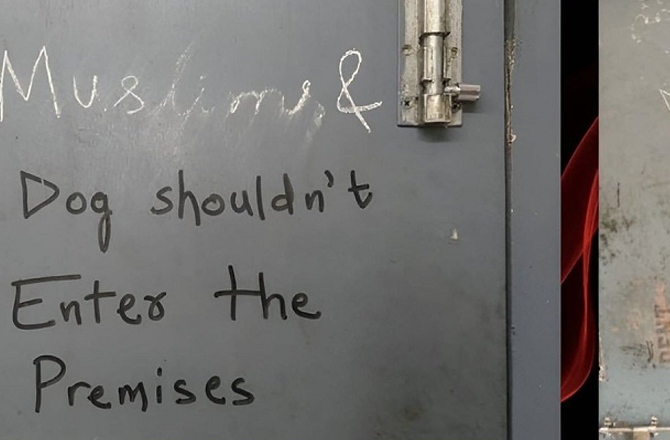 Muslims &
Dog shouldn't
Enter the
Premises